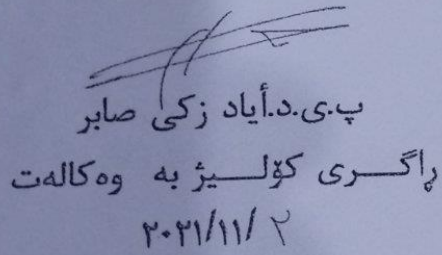 پ.ی.د.أیاد زکی صابر
ڕاگری کۆلیژ بە وەکالەت
٢٠٢١/١١/ ٢